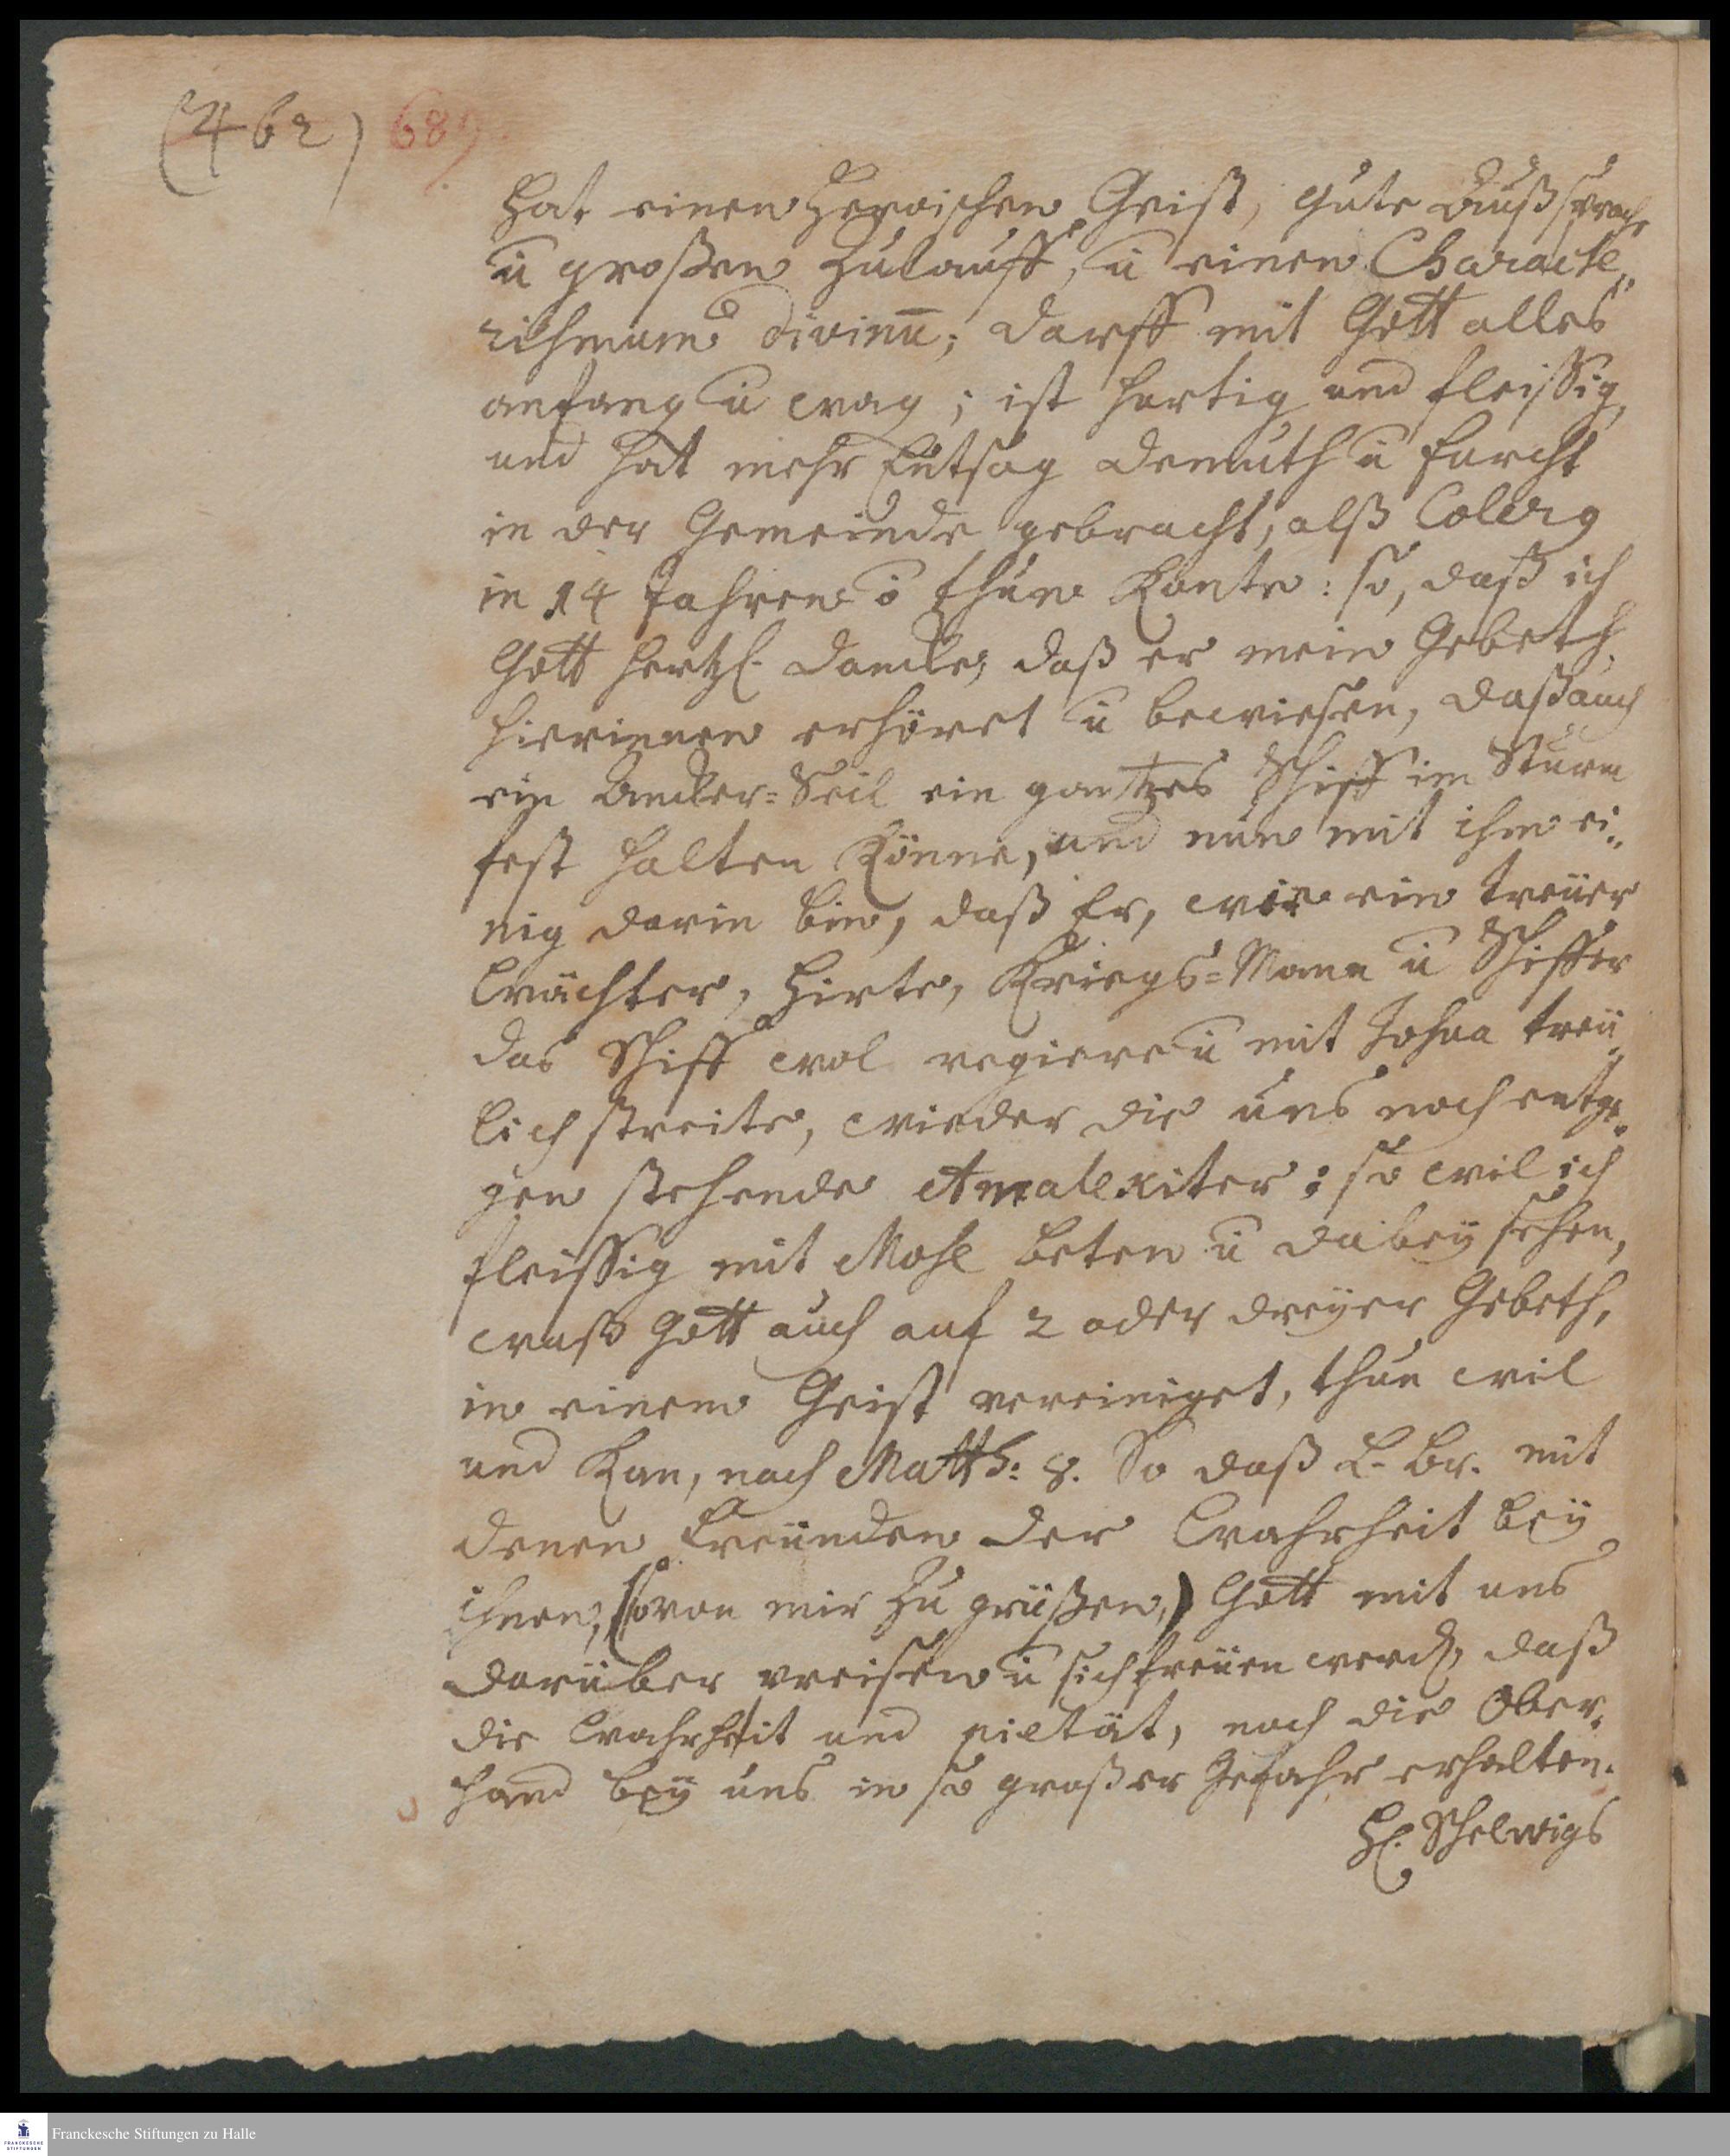 (462) 689.
Hat einen Heroischen Geist, gute Außsprach,
u großen Zulauff, u einen Characte„
rismum divinū; darff mit Gott alles
anfang u wag; ist hurtig und fleissig,
und hat mehr Demuth u furcht
in der Gemeinde gebracht, alß Colerg
in 14 Jahren õ thun Konte: so, daß ich
Gott hertzl. dancke, daß er mein Gebeth,
hierinnen erhöret u bewiesen, daß auch
ein Ancker=Seil ein gantzes Schiff im Sturm
fest halten Könne, und nun mit ihm ei„
nig darin bin, daß Er, wie ein treüer
Wächter, Hirte, Kriegs=Mann u Schiffer
das Schiff wol regiere u mit Josua treü„
lich streite, wieder die uns noch entge„
gen stehende Amalekiter: so wil ich
fleissig mit Mose beten u dabeÿ sehen,
waß Gott auch auf 2 oder dreÿer Gebeth,
in einem Geist vereiniget, thun wil
und Kan, nach Matth: 8. So daß L. Br. mit
denen Freünden der Wahrheit beÿ
ihnen, (so von mir zu grüßen,) Gott mit uns
darüber preisen u sich freüen werd, daß
die Wahrheit und pietät, noch die Ober„
hand beÿ uns in so großer Gefahr erhalten.
H. Schelwigs
Franckesche Stiftungen zu Halle